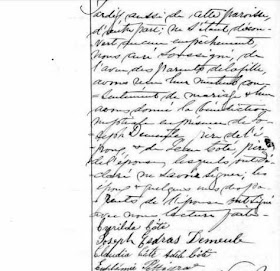 Tardif, aussi de cette paroisse
d'autre part; ne s'étant décou-
vert aucun empêchement,
nous curé soussigné, de
l'avis des parents de la fille,
avons reçu leur mutuel con-
sentement de mariage & leur
avons donné la bénédiction
nuptiale en présence de Jo-
seph Demeule, père de l'é-
poux, & de Côté, père
de l'épouse, lesquels ont dé-
claré ne savoir signer; les
époux & quelques uns des pa-
rents de l'épouse ont signé
avec nous lecture faite.
Exilda Côté
Joseph Esdras Demeule
Claudia Côté Adèle Côté